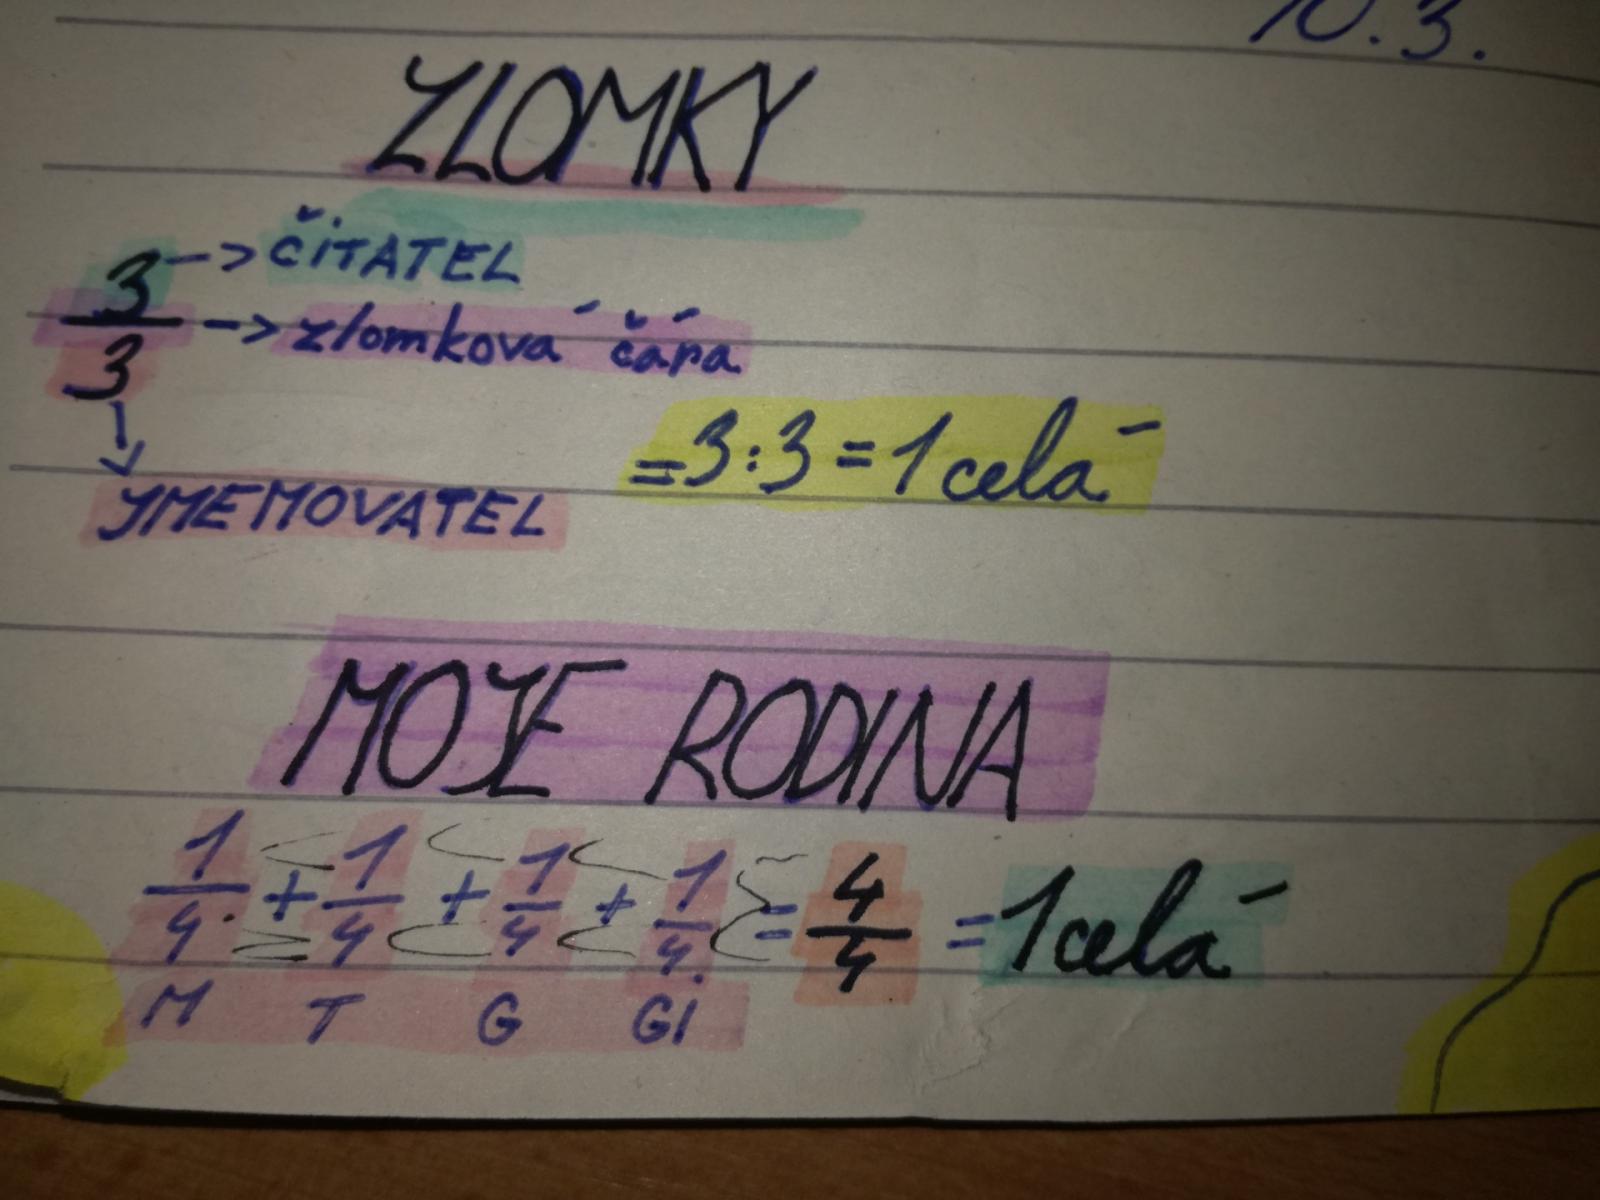 10.3.
ZLOMKY
3 -> čiTATEL
— -> zlomková čára
3
= 3:3 = 1 celá
JMEMOVATEL
MOJE RODINA
1/4. + 1/4 + 1/4 + 1/4. = 4/4 = 1 celá
M T G Gi